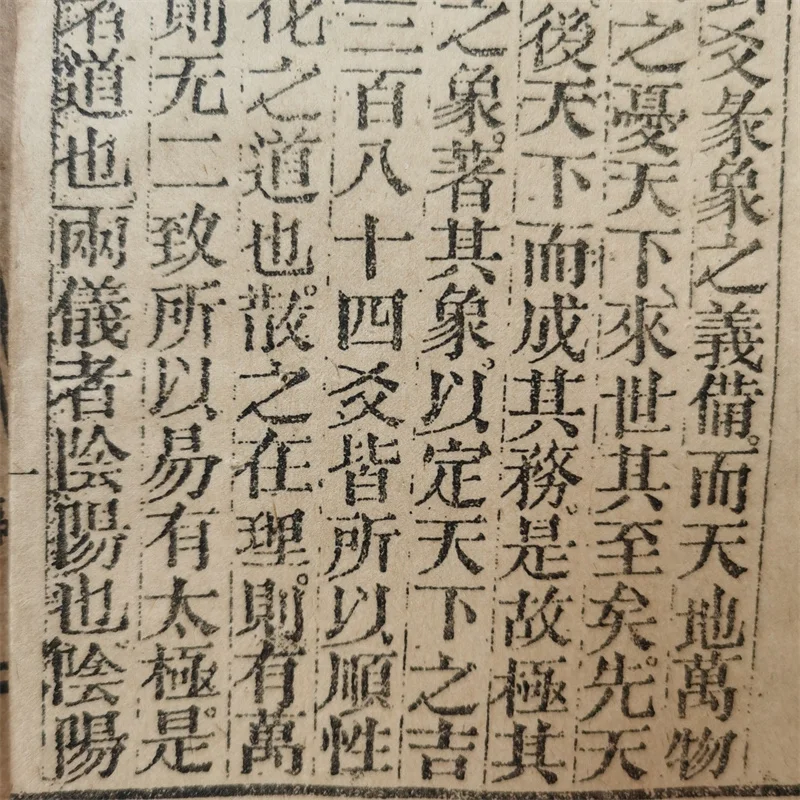 爻彖象之義備。而天地萬物
之憂天下、來世其至矣。先天
後天下而成其務。是故極其
之象。著其象。以定天下之吉
三百八十四爻皆所以順性
化之道也。散之在理。則有萬
則无二致所以易有太極。是
道也兩儀者陰陽也陰陽
一